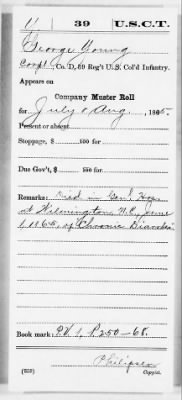 Y 39 U.S.C.T.
George Young
Corpl, Co. D, 39 Reg't U.S. Col'd Infantry.
Appears on
Company Muster Roll
for July & Aug, 1865.
Present or absent
Stoppage, $ 100 for
Due Gov't, $ 100 for
Remarks: Died in Genl Hosp
at Wilmington N.C., June
1, 1865, of Chronic Diarrhea
Book mark: R.V. 1, P. 250-68.
(358)
Copyist.